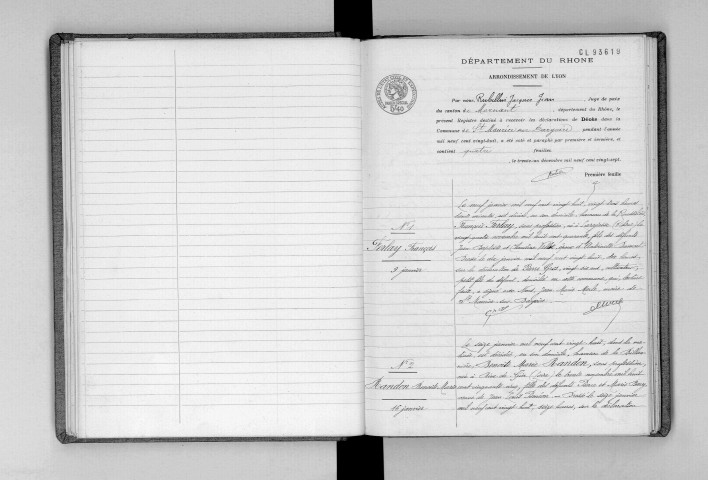 CL 93619
DÉPARTEMENT DU RHONE
ARRONDISSEMENT DE LYON
Par nous, Rebellin Jacques Jean, Juge de paix
du canton de Mornant, département du Rhône, le
présent Registre destiné à recevoir les déclarations de Décès dans la
Commune de St Maurice sur Dargoire pendant l'année
mil neuf cent vingt-huit, a été coté et paraphé par première et dernière, et
contient quatre feuilles.
le trente-un décembre mil neuf cent vingt-sept.
Première feuille
0f40
N° 1
Ferlay François
9 janvier
Le neuf janvier mil neuf cent vingt huit, vingt deux heures
est décédé, en son domicile, hameau de
François Ferlay, sans profession, né à
vingt quatre novembre mil huit cent quarante, fils des défunts
Jean Baptiste et Claudine Villet, époux
Dressé le dix janvier mil neuf cent vingt huit, dix heures
sur la déclaration de Pierre Gras, vingt six ans, cultivateur,
petit fils du défunt, domicilié en cette commune qui, lecture
faite, a signé avec Nous, Jean Marie Merle, maire de
St Maurice sur Dargoire
N° 2
Randon Benoîte Marie
16 janvier
Le seize janvier mil neuf cent vingt huit,
est décédée en son domicile, hameau de
Benoîte Marie Randon, sans profession,
née à Rive de Gier, Loire, le trente novembre mil huit
cent cinquante cinq, fille des défunts Pierre et Marie
veuve de Jean
Dressé le seize janvier
mil neuf cent vingt huit, seize heures, sur la déclaration